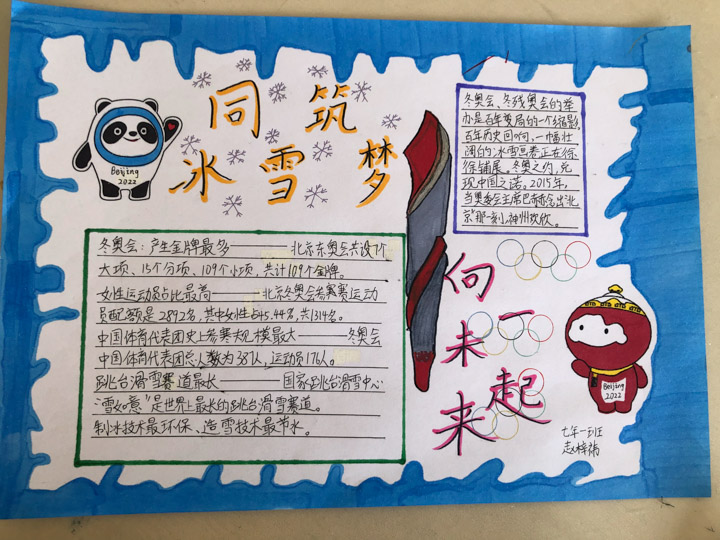 同筑
冰雪梦
Beijing
2022
冬奥会、冬残奥会的举
办是百年变局的一个缩影,
百年历史回响,一幅壮
阔的冰雪画卷正在徐
徐铺展。冬奥之约,兑
现中国之诺。2015年,
当奥委会主席巴赫念出“北
京”那一刻,神州欢欣。
冬奥会:产生金牌最多——北京东奥会共设7个
大项、15个分项、109个小项,共计109个金牌。
女性运动员占比最高——北京冬奥会参赛运动
员配额是2892名,其中女性占45.44名,共1314名。
中国体育代表团史上参赛大规模最大——冬奥会
中国体育代表团总人数为387人,运动员176人。
跳台滑雪赛道最长——国家跳台滑雪中心
“雪如意”是世界上最长的跳台滑雪赛道。
制冰技术最环保、造雪技术最节水。
一起
向未来
Beijing
2022
七年一班
赵梓